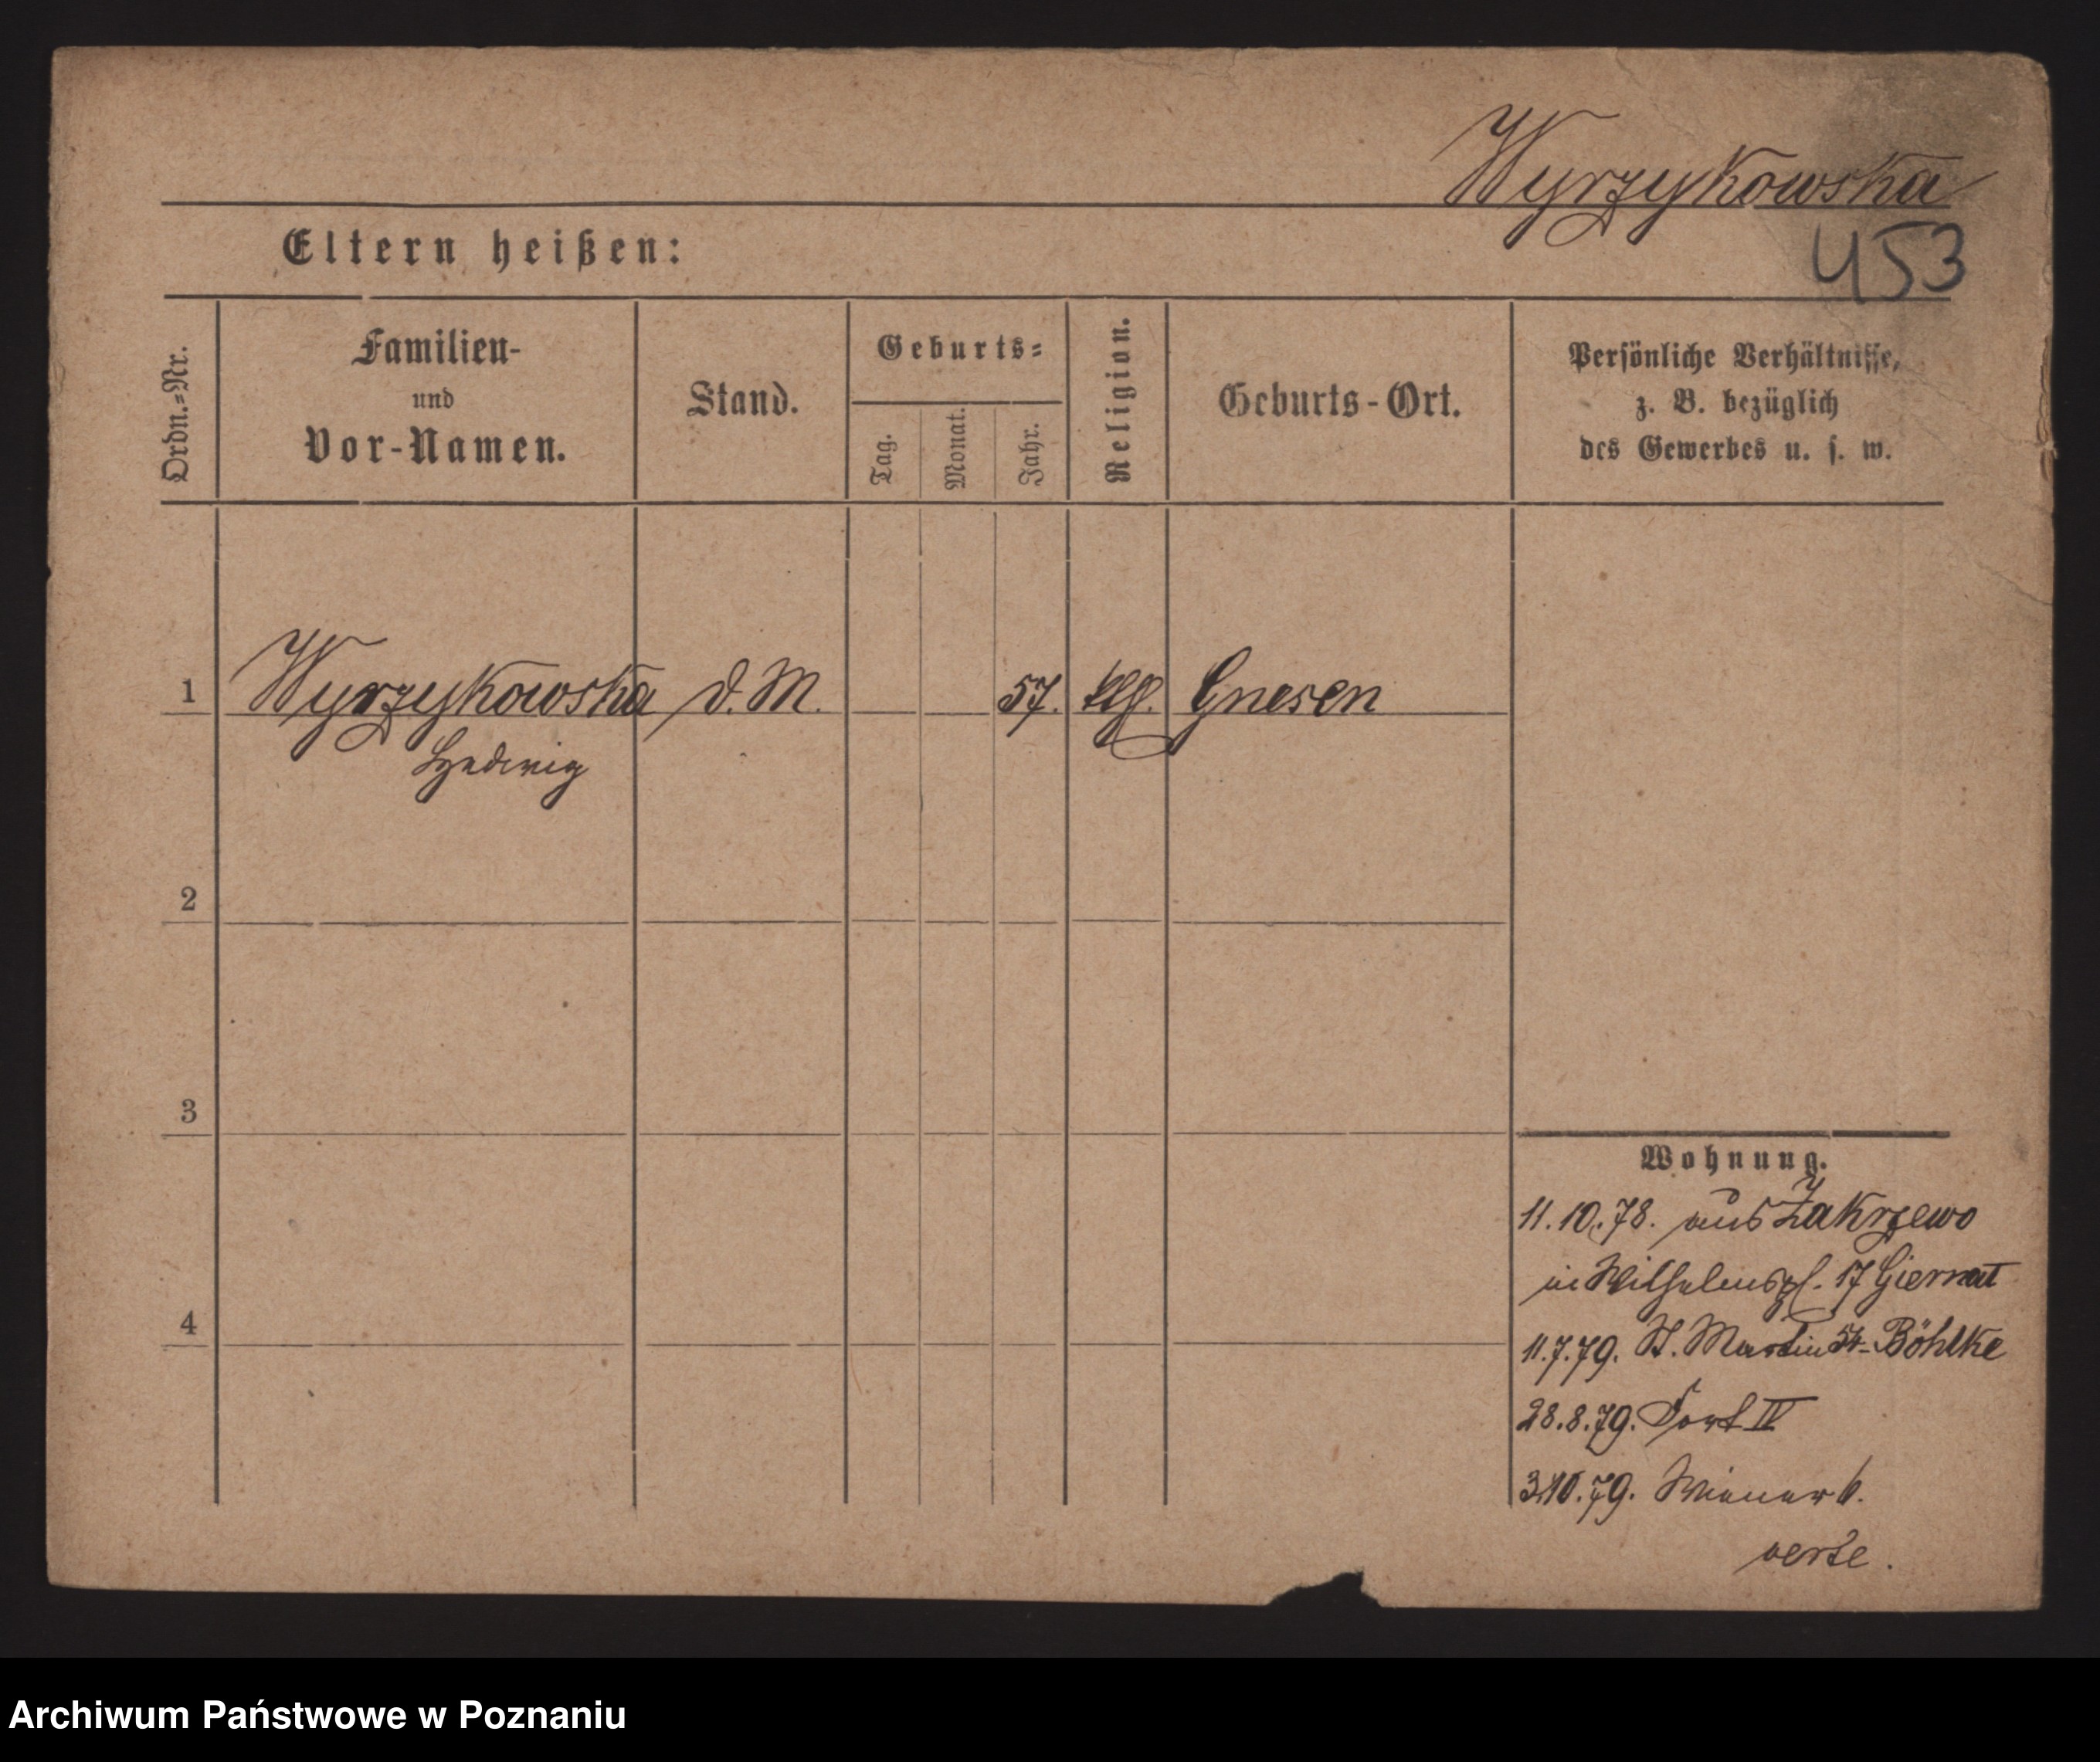 Wyrzykowska
453
Eltern heißen:
Ordn.-Nr.
Familien-
und
Vor-Namen.
Stand.
Geburts-
Tag.
Monat.
Jahr.
Religion.
Geburts-Ort.
Persönliche Verhältnisse,
z. B. bezüglich
des Gewerbes u. s. w.
1 Wyrzykowska d. M. 57. Gnesen
Hedwig
2
3
4
Wohnung.
11.10.78. aus Zakrzewo
in Wilhelmspl. 17 Giernat
11.7.79. St. Martin 54 - Böhlke
28.8.79. Fort IV
3.10.79. Wiener 6.
verte.
Archiwum Państwowe w Poznaniu